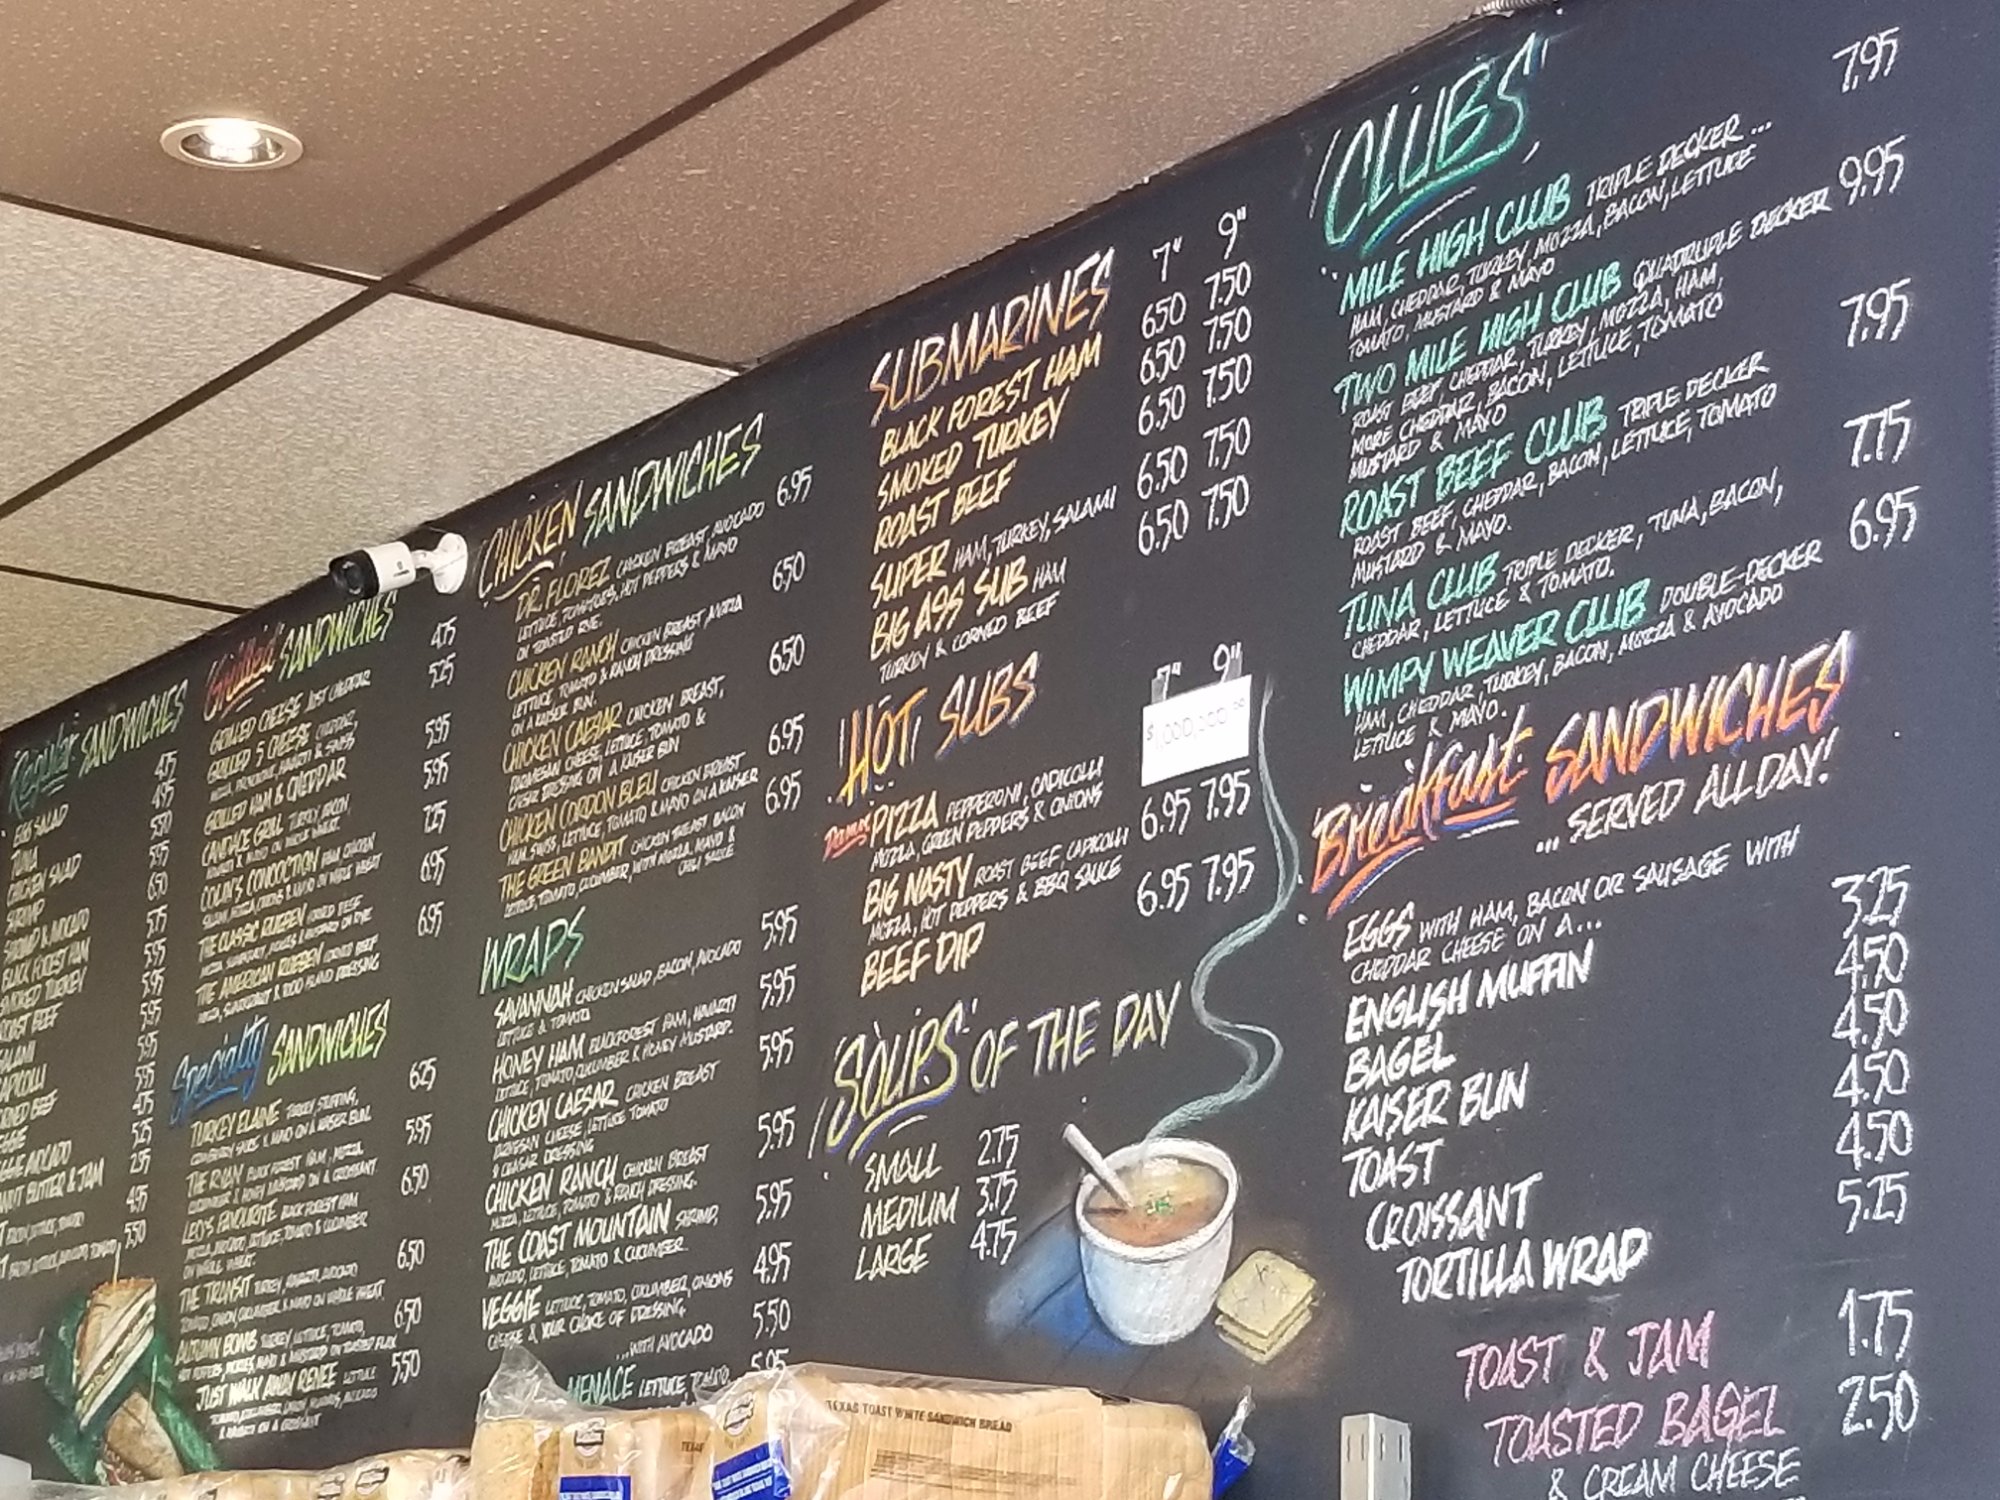 Regular SANDWICHES
EGG SALAD 4.75
TUNA 4.95
CHICKEN SALAD 5.50
SHRIMP 5.95
SHRIMP & AVOCADO 6.50
BLACK FOREST HAM 5.75
SMOKED TURKEY 5.95
ROAST BEEF 5.95
SALAMI 5.95
CAPICOLLI 5.95
CORNED BEEF 5.95
VEGGIE 4.75
VEGGIE AVOCADO 5.25
BUTTER & JAM 2.95
4.95
5.50
Grilled SANDWICHES
GRILLED CHEESE JUST CHEDDAR 4.75
GRILLED 5 CHEESE CHEDDAR, 5.25
MOZZA, PROVOLONE, HAVARTI & SWISS
GRILLED HAM & CHEDDAR 5.95
CANDACE GRILL TURKEY, BACON, 5.95
& MAYO ON WHOLE WHEAT
COLIN'S CONCOCTION HAM, CHICKEN 7.25
SALAMI, MOZZA, ONIONS & MAYO ON WHOLE WHEAT
THE CLASSIC RUEBEN CORNED BEEF 6.95
MOZZA, SAUERKRAUT, PICKLES & MUSTARD ON RYE
THE AMERICAN RUEBEN CORNED BEEF 6.95
MOZZA, SAUERKRAUT & 1000 ISLAND DRESSING
Specialty SANDWICHES
TURKEY ELAINE TURKEY, STUFFING, 6.25
CRANBERRY SAUCE & MAYO ON A KAISER BUN.
THE RYAN BLACK FOREST HAM, MOZZA, 5.95
CUCUMBER & HONEY MUSTARD ON A CROISSANT.
LEO'S FAVOURITE BLACK FOREST HAM 6.50
MOZZA, AVOCADO, LETTUCE, TOMATO & CUCUMBER
ON WHOLE WHEAT.
THE TRANSIT TURKEY, HAVARTI, AVOCADO 6.50
TOMATO, ONION, CUCUMBER & MAYO ON WHOLE WHEAT
AUTUMN BOMB TURKEY, LETTUCE, TOMATO, 6.50
HOT PEPPERS, PICKLES, MAYO & MUSTARD ON TOASTED FLAX
JUST WALK AWAY RENEE LETTUCE 5.50
TOMATO, CUCUMBER, ONION, AVOCADO
& HAVARTI ON A CROISSANT
CHICKEN SANDWICHES
DR. FLOREZ CHICKEN BREAST, AVOCADO 6.95
LETTUCE, TOMATOES, HOT PEPPERS & MAYO
ON TOASTED RYE.
CHICKEN RANCH CHICKEN BREAST, MOZZA 6.50
LETTUCE TOMATO & RANCH DRESSING
ON A KAISER BUN.
CHICKEN CAESAR CHICKEN BREAST, 6.50
PARMESAN CHEESE, LETTUCE TOMATO &
CAESAR DRESSING ON A KAISER BUN
CHICKEN CORDON BLEU CHICKEN BREAST 6.95
HAM, SWISS, LETTUCE, TOMATO & MAYO ON A KAISER
THE GREEN BANDIT CHICKEN BREAST BACON 6.95
LETTUCE TOMATO, CUCUMBER, WITH MOZZA, MAYO &
CHILI SAUCE
WRAPS
SAVANNAH CHICKEN SALAD, BACON, AVOCADO 5.95
LETTUCE & TOMATO
HONEY HAM BLACKFOREST HAM, HAVARTI 5.95
LETTUCE, TOMATO, CUCUMBER & HONEY MUSTARD.
CHICKEN CAESAR CHICKEN BREAST 5.95
PARMESAN CHEESE, LETTUCE TOMATO
& CEASAR DRESSING
CHICKEN RANCH CHICKEN BREAST 5.95
MOZZA, LETTUCE, TOMATO & RANCH DRESSING.
THE COAST MOUNTAIN SHRIMP, 5.95
AVOCADO, LETTUCE, TOMATO & CUCUMBER.
VEGGIE LETTUCE, TOMATO, CUCUMBER, ONIONS 4.95
CHEESE & YOUR CHOICE OF DRESSING.
...WITH AVOCADO 5.50
MENACE LETTUCE, TOMATO, 5.95
SUBMARINES 7" 9"
BLACK FOREST HAM 6.50 7.50
SMOKED TURKEY 6.50 7.50
ROAST BEEF 6.50 7.50
SUPER HAM, TURKEY, SALAMI 6.50 7.50
BIG ASS SUB HAM 6.50 7.50
TURKEY & CORNED BEEF
HOT SUBS 7" 9"
PIZZA PEPPERONI, CAPICOLLI
MOZZA, GREEN PEPPERS & ONIONS
BIG NASTY ROAST BEEF, CAPICOLLI 6.95 7.95
MOZZA, HOT PEPPERS & BBQ SAUCE
BEEF DIP 6.95 7.95
SOUPS OF THE DAY
SMALL 2.75
MEDIUM 3.75
LARGE 4.75
CLUBS
MILE HIGH CLUB TRIPLE DECKER ... 7.95
HAM, CHEDDAR, TURKEY, MOZZA, BACON, LETTUCE
TOMATO, MUSTARD & MAYO
TWO MILE HIGH CLUB QUADRUPLE DECKER 9.95
ROAST BEEF, CHEDDAR, TURKEY, MOZZA, HAM,
MORE CHEDDAR, BACON, LETTUCE, TOMATO
MUSTARD & MAYO
ROAST BEEF CLUB TRIPLE DECKER 7.95
ROAST BEEF, CHEDDAR, BACON, LETTUCE, TOMATO
MUSTARD & MAYO.
TUNA CLUB TRIPLE DECKER, TUNA, BACON, 7.75
CHEDDAR, LETTUCE & TOMATO.
WIMPY WEAVER CLUB DOUBLE-DECKER 6.95
HAM, CHEDDAR, TURKEY, BACON, MOZZA & AVOCADO
LETTUCE & MAYO.
Breakfast SANDWICHES
... SERVED ALL DAY!
EGGS WITH HAM, BACON OR SAUSAGE WITH 3.25
CHEDDAR CHEESE ON A...
ENGLISH MUFFIN 4.50
BAGEL 4.50
KAISER BUN 4.50
TOAST 4.50
CROISSANT 5.25
TORTILLA WRAP
TOAST & JAM 1.75
TOASTED BAGEL 2.50
& CREAM CHEESE
TEXAS TOAST WHITE SANDWICH BREAD